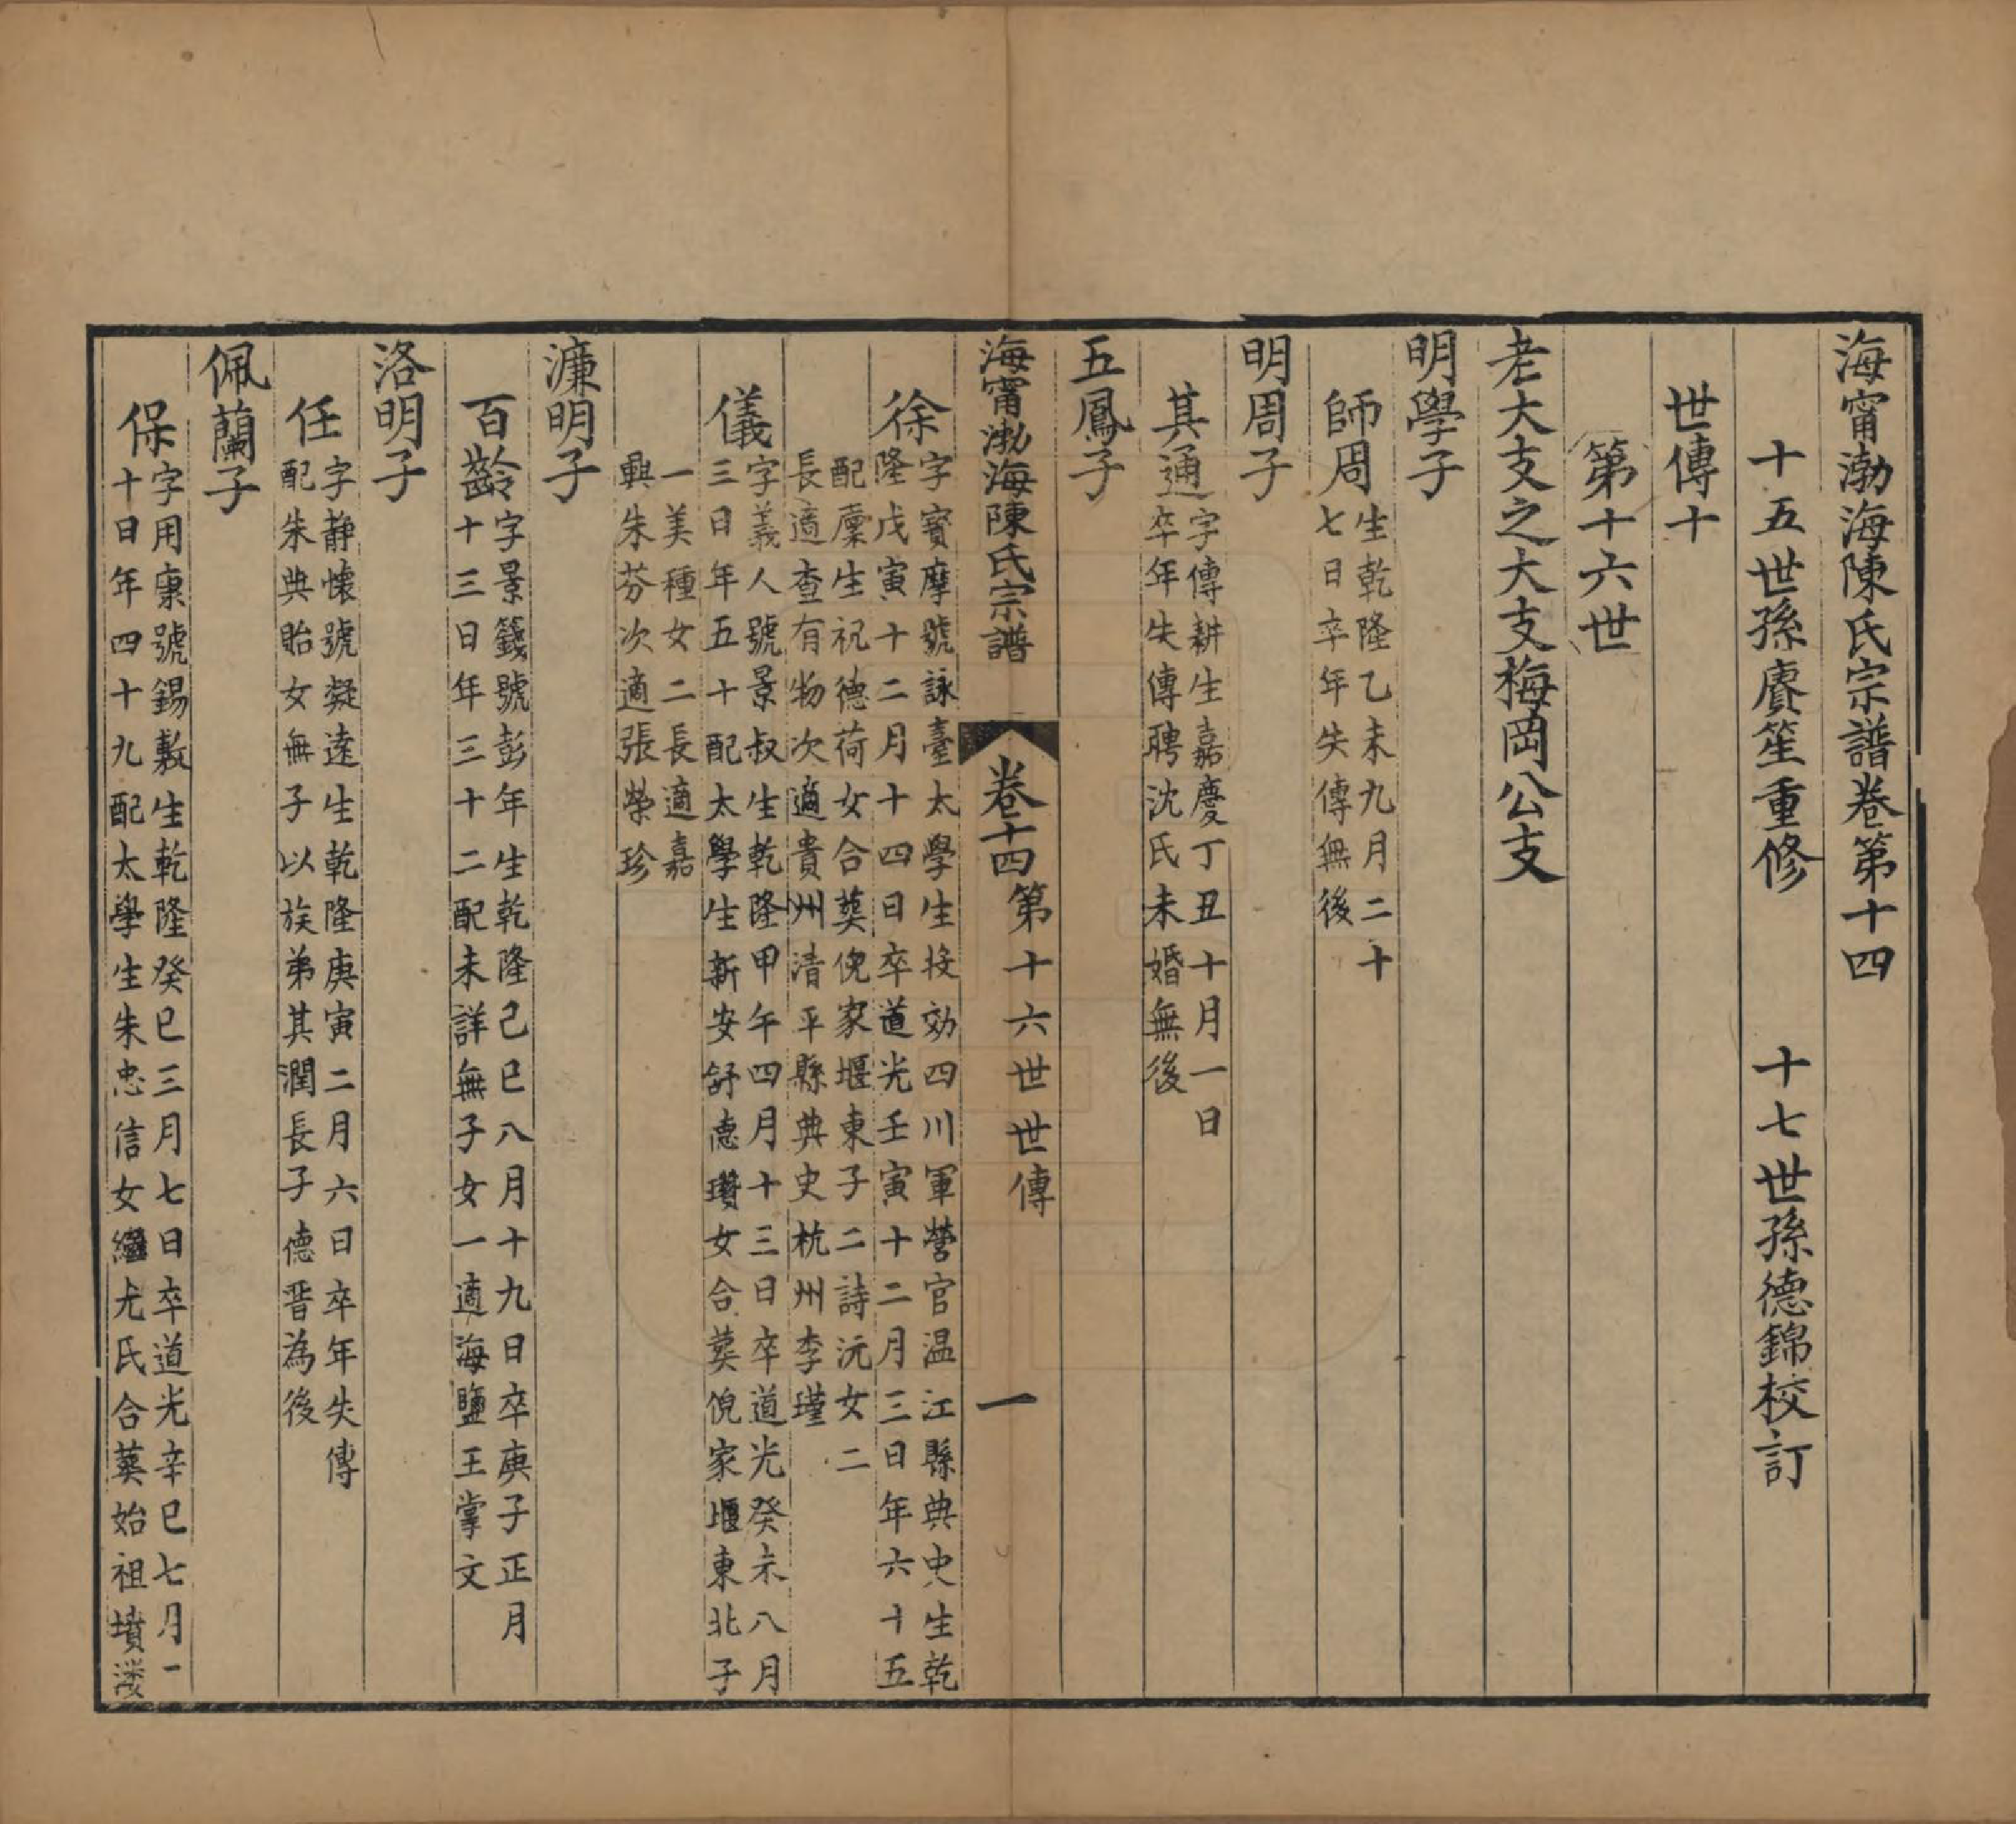 海甯渤海陳氏宗譜卷第十四
十五世孫賡笙重修　十七世孫德錦校訂
世傳十
第十六世
老大支之大支梅岡公支
明學子
師周
生乾隆乙未九月二十
七日卒年失傳無後
明周子
其通
字傳耕生嘉慶丁丑十月一日
卒年失傳聘沈氏未婚無後
五鳳子
海甯渤海陳氏宗譜　卷十四　第十六世世傳　一
徐
字寶摩號詠臺太學生投効四川軍營官温江縣典史生乾
隆戊寅十二月十四日卒道光壬寅十二月三日年六十五
配廪生祝德荷女合葬倪家堰東子二詩沅女二
長適查有物次適貴州清平縣典史杭州李瑾
儀
字義人號景叔生乾隆甲午四月十三日卒道光癸未八月
三日年五十配太學生新安舒悳瓚女合葬倪家堰東北子
一美種女二長適嘉
興朱芬次適張榮珍
濂明子
百齡
字景籛號彭年生乾隆己巳八月十九日卒庚子正月
十三日年三十二配未詳無子女一適海鹽王掌文
洛明子
任
字静懐號凝遠生乾隆庚寅二月六日卒年失傳
配朱典貽女無子以族弟其潤長子德晋為後
佩蘭子
保
字用康號錫敷生乾隆癸巳三月七日卒道光辛巳七月一
十日年四十九配太學生朱忠信女繼尤氏合葬始祖墳